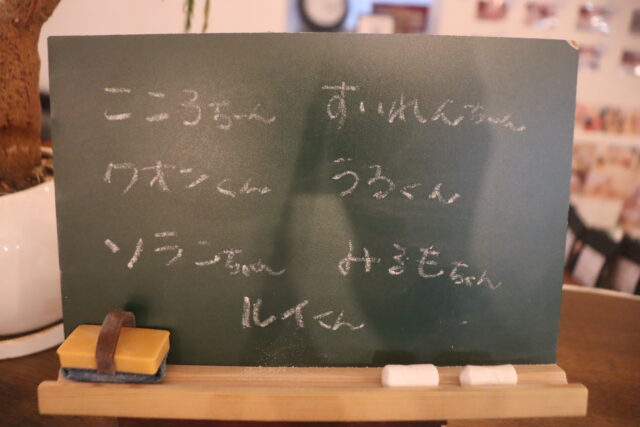 こころちゃん すいれんちゃん
クオンくん うるくん
ソランちゃん みるもちゃん
ルイくん